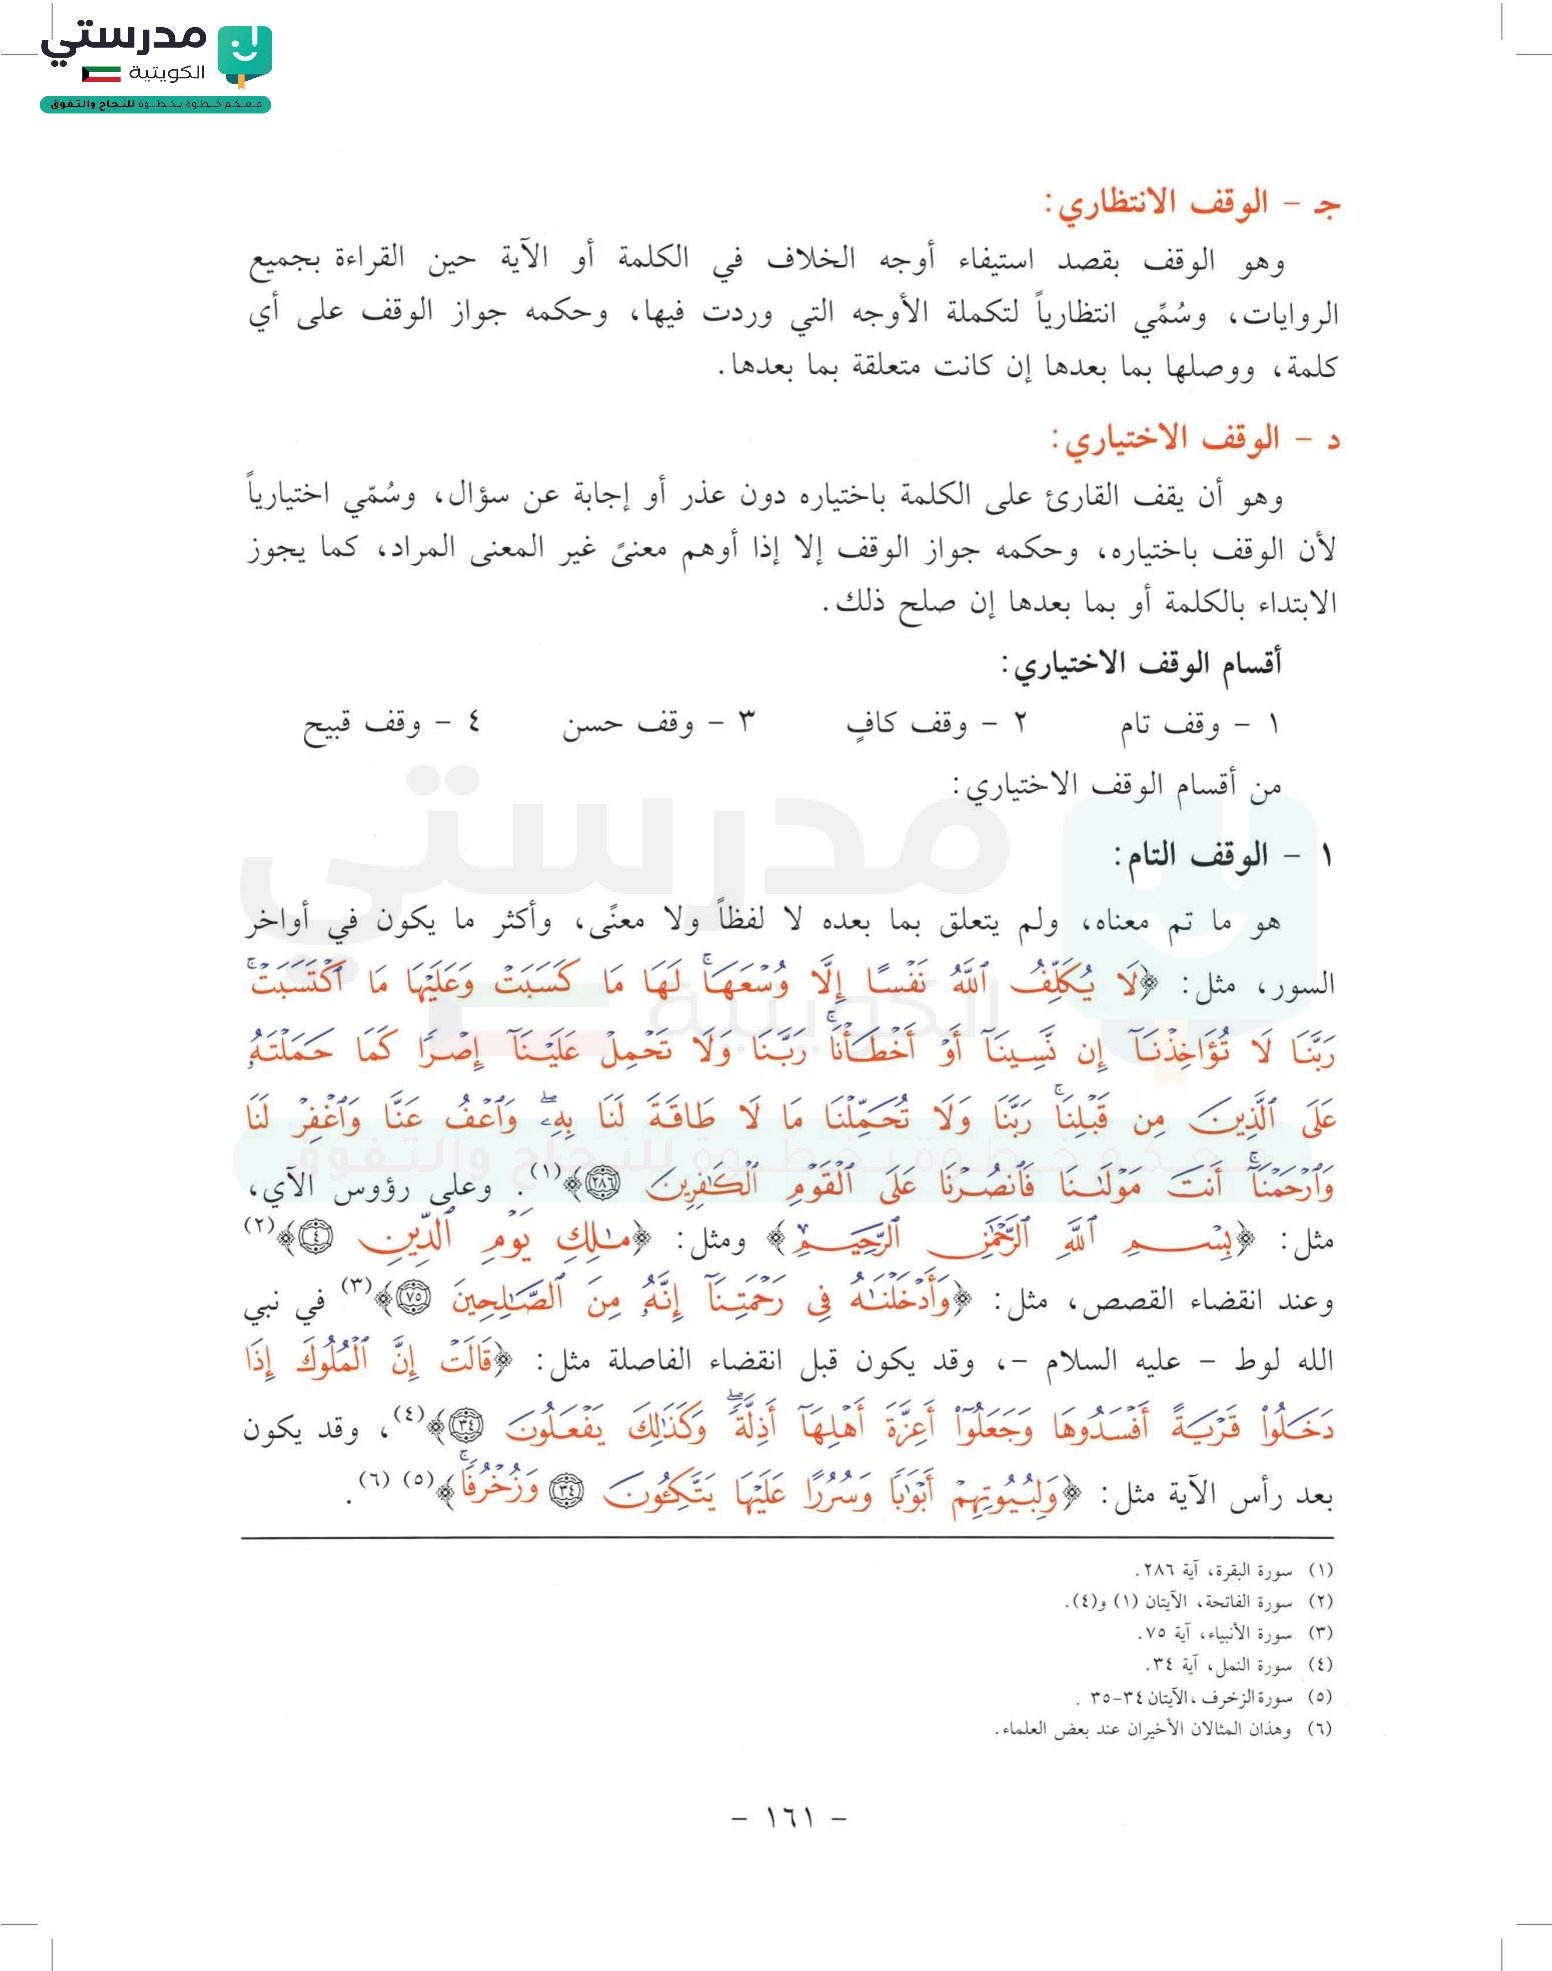 مدرستي
الكويتية
معكم خطوة بخطوة للنجاح والتفوق
جـ - الوقف الانتظاري:
وهو الوقف بقصد استيفاء أوجه الخلاف في الكلمة أو الآية حين القراءة بجميع
الروايات، وسُمِّي انتظارياً لتكملة الأوجه التي وردت فيها، وحكمه جواز الوقف على أي
كلمة، ووصلها بما بعدها إن كانت متعلقة بما بعدها.
د - الوقف الاختياري:
وهو أن يقف القارئ على الكلمة باختياره دون عذر أو إجابة عن سؤال، وسُمّي اختيارياً
لأن الوقف باختياره، وحكمه جواز الوقف إلا إذا أوهم معنىً غير المعنى المراد، كما يجوز
الابتداء بالكلمة أو بما بعدها إن صلح ذلك.
أقسام الوقف الاختياري:
١ - وقف تام ٢ - وقف كافٍ ٣ - وقف حسن ٤ - وقف قبيح
من أقسام الوقف الاختياري:
١ - الوقف التام:
هو ما تم معناه، ولم يتعلق بما بعده لا لفظاً ولا معنًى، وأكثر ما يكون في أواخر
السور، مثل: ﴿لَا يُكَلِّفُ ٱللَّهُ نَفْسًا إِلَّا وُسْعَهَاۚ لَهَا مَا كَسَبَتْ وَعَلَيْهَا مَا ٱكْتَسَبَتْۗ
رَبَّنَا لَا تُؤَاخِذْنَآ إِن نَّسِينَآ أَوْ أَخْطَأْنَاۚ رَبَّنَا وَلَا تَحْمِلْ عَلَيْنَآ إِصْرًا كَمَا حَمَلْتَهُۥ
عَلَى ٱلَّذِينَ مِن قَبْلِنَاۚ رَبَّنَا وَلَا تُحَمِّلْنَا مَا لَا طَاقَةَ لَنَا بِهِۦۖ وَٱعْفُ عَنَّا وَٱغْفِرْ لَنَا
وَٱرْحَمْنَآۚ أَنتَ مَوْلَىٰنَا فَٱنصُرْنَا عَلَى ٱلْقَوْمِ ٱلْكَٰفِرِينَ ٢٨٦﴾(١). وعلى رؤوس الآي،
مثل: ﴿بِسْمِ ٱللَّهِ ٱلرَّحْمَٰنِ ٱلرَّحِيمِ﴾ ومثل: ﴿مَٰلِكِ يَوْمِ ٱلدِّينِ ٤﴾(٢)
وعند انقضاء القصص، مثل: ﴿وَأَدْخَلْنَٰهُ فِى رَحْمَتِنَآ إِنَّهُۥ مِنَ ٱلصَّٰلِحِينَ ٧٥﴾(٣) في نبي
الله لوط - عليه السلام -، وقد يكون قبل انقضاء الفاصلة مثل: ﴿قَالَتْ إِنَّ ٱلْمُلُوكَ إِذَا
دَخَلُوا۟ قَرْيَةً أَفْسَدُوهَا وَجَعَلُوٓا۟ أَعِزَّةَ أَهْلِهَآ أَذِلَّةًۖ وَكَذَٰلِكَ يَفْعَلُونَ ٣٤﴾(٤)، وقد يكون
بعد رأس الآية مثل: ﴿وَلِبُيُوتِهِمْ أَبْوَٰبًا وَسُرُرًا عَلَيْهَا يَتَّكِـُٔونَ ٣٤ وَزُخْرُفًاۚ﴾(٥) (٦).
(١) سورة البقرة، آية ٢٨٦.
(٢) سورة الفاتحة، الآيتان (١) و(٤).
(٣) سورة الأنبياء، آية ٧٥.
(٤) سورة النمل، آية ٣٤.
(٥) سورة الزخرف، الآيتان ٣٤-٣٥ .
(٦) وهذان المثالان الأخيران عند بعض العلماء.
- ١٦١ -